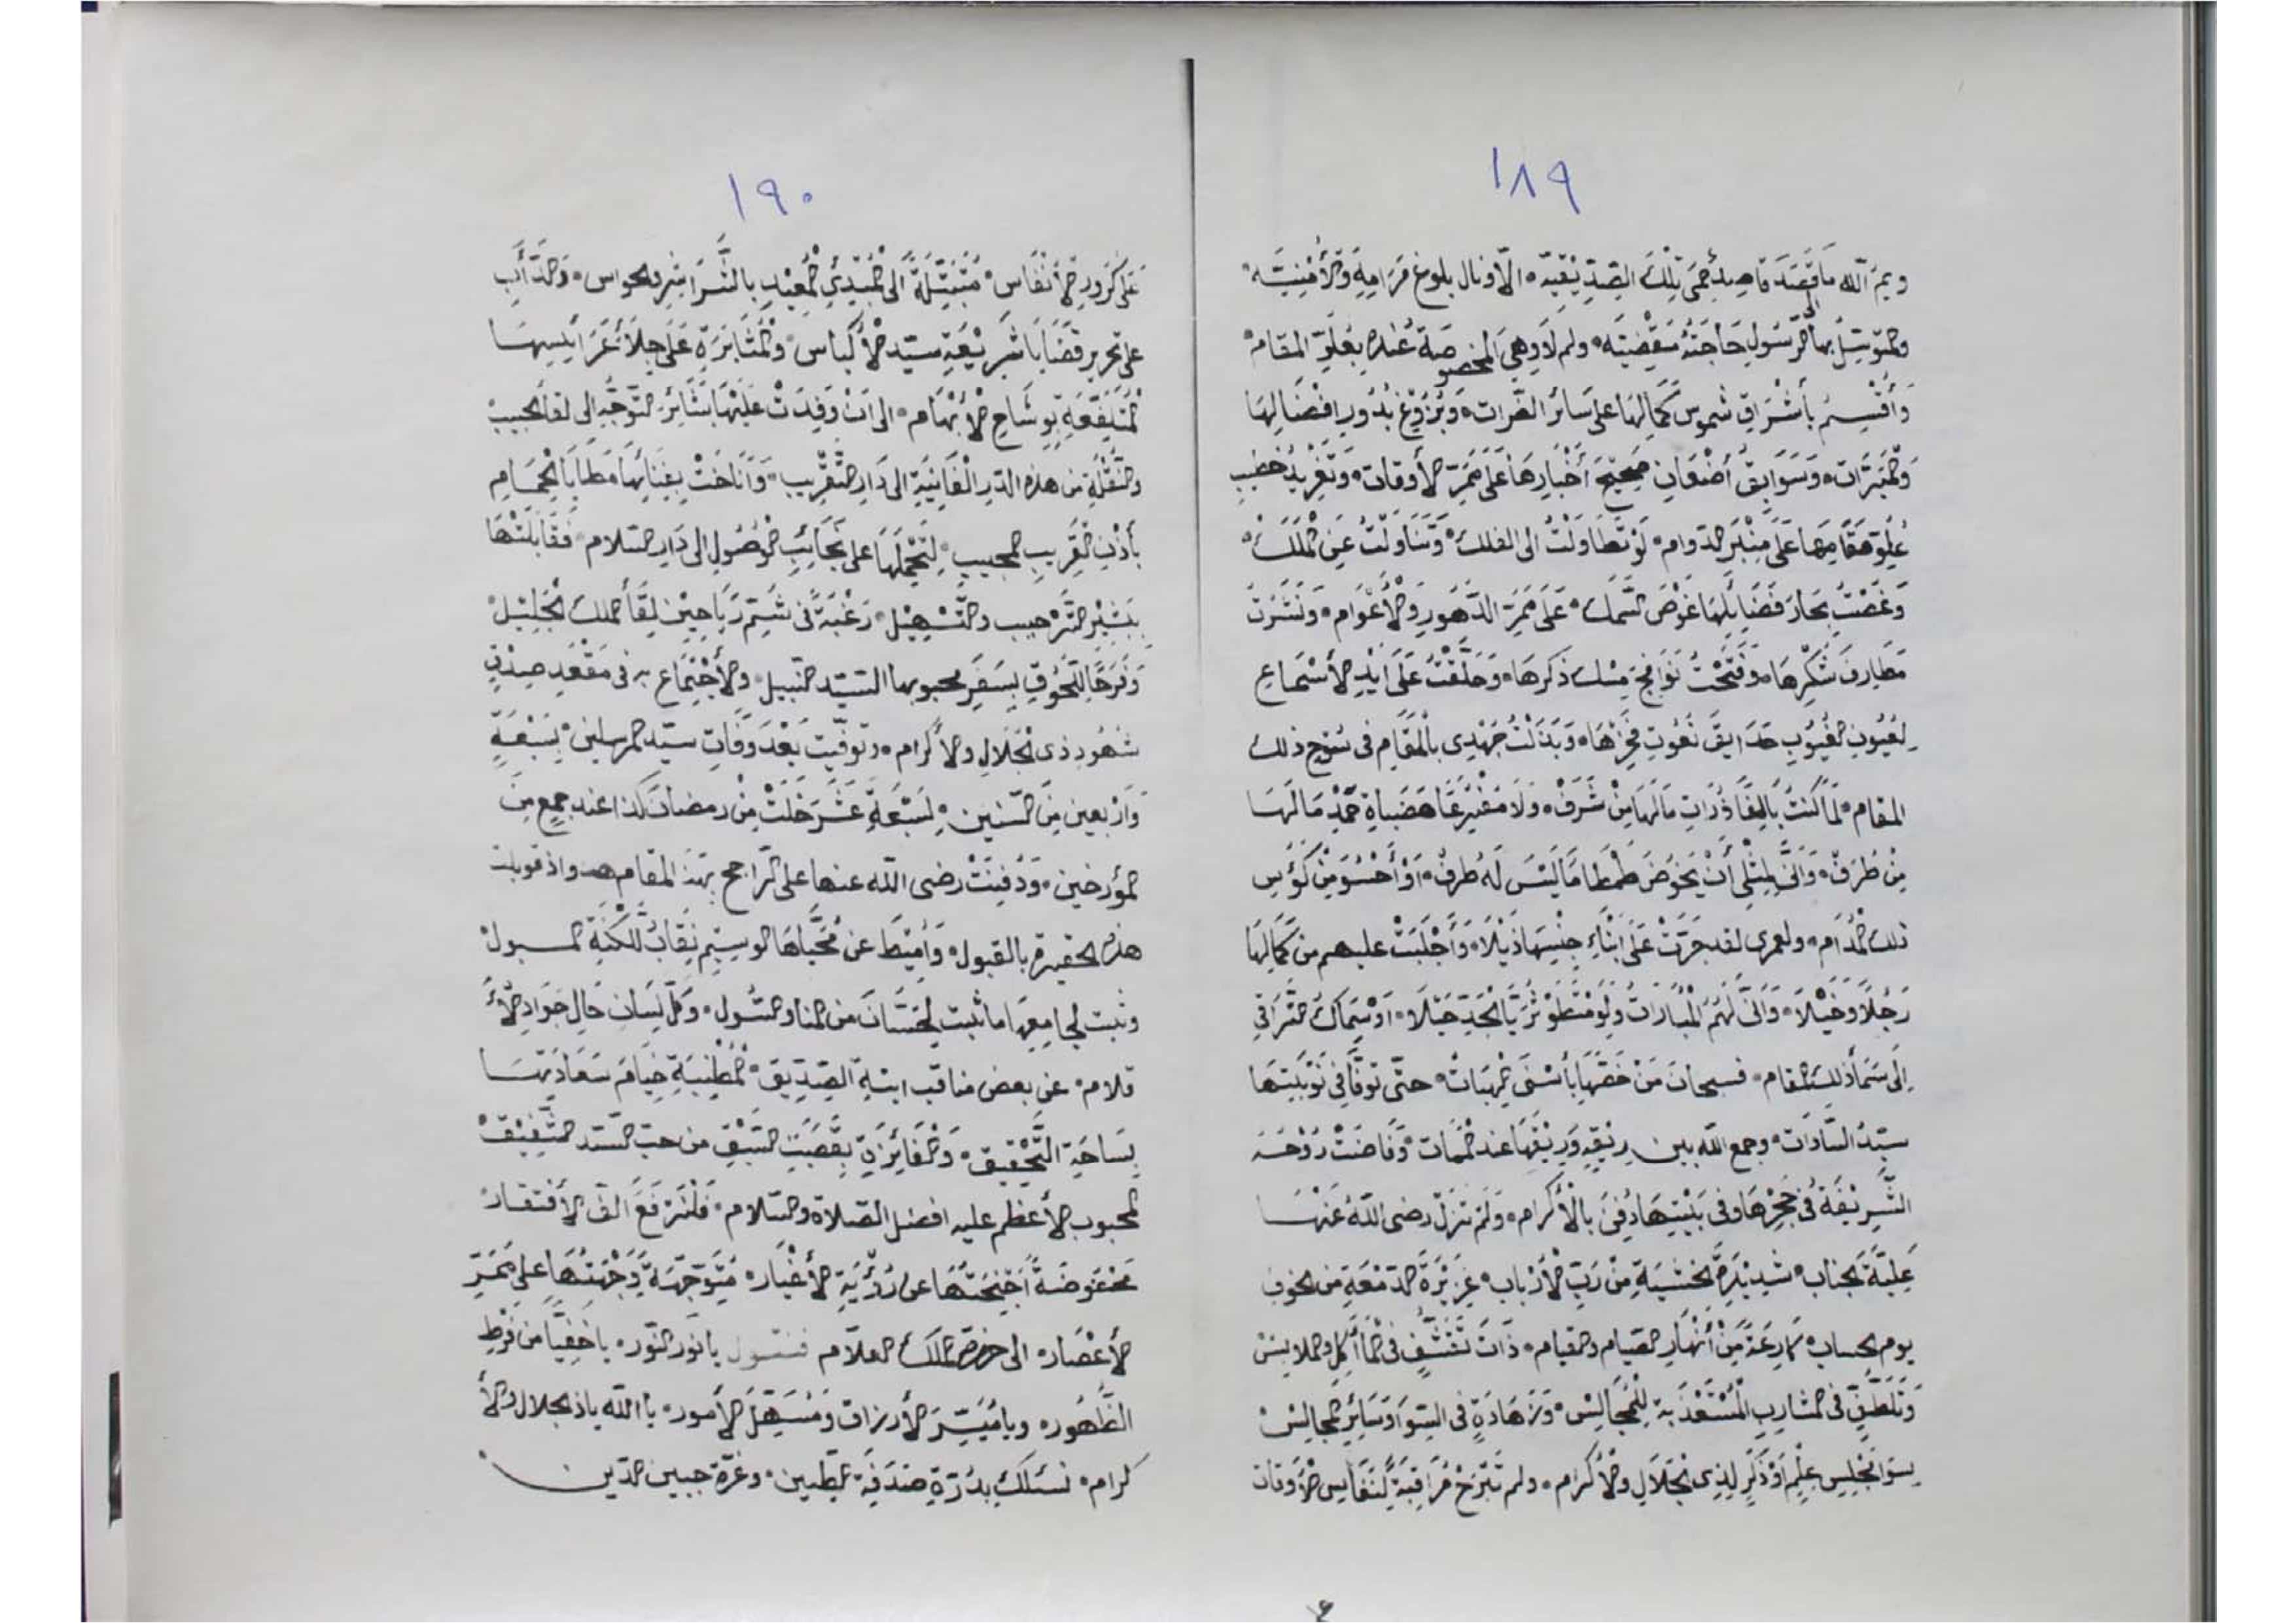 ١٨٩
ويم الله ما قصد قاصد حمى تلك الصديقيه الا ونال بلوغ مراميه والأمنيته
والمتوسل بها الى الرسول حاجته مقضيته ولم لا وهي المخصوصة عنده بعلو المقام
وأقسم بأشراق شموس كمالها على سائر الضرات وبزوغ بدور افضالها
والمبرات وسوابق أضعان صحيح أخبارها على ممر الأوقات وتغريد خطيب
علو مقامها على منبر الدوام لو تطاولت الى الفلك وتناولت عن الملك
وغصت بحار فضائلها غوض السمك على ممر الدهور والأعوام ونشرت
مطارف شكرها وفتحت نوافج مسك ذكرها وحلقت على ايد الأسماع
لعيون الغيوب حدايق نعوت فخرها وبذلت جهدي بالمقام في سوح ذلك
المقام لما كنت بالغا ذرات مالها من شرف ولا مغيرعا هضباة حمد مالها
من طرف وانى لمثلي أن يخوض طمطاما ليس له طرف او أحسو من كؤس
ذلك المدام ولعمري لقد جرت على ابناء جنسها ذيلا وأجلبت عليهم من كمالها
رجلا وخيلا وانى لهم المبارات ولو متطو ثريا الجد حيلا او سماك التراقي
الى سما ذلك المقام فسبحان من خصها بأسنى الهبات حتى توفا في نوبتها
سيد السادات وجمع الله بين ريقه وريقها عند الممات وفاضت روحه
الشريفة في حجرها وفي بيتها دفن بالأكرام ولم تزل رضى الله عنها
علية الجناب شديدة الخشية من رب الأرباب غزيرة الدمعة من الخوف
يوم الحساب كارعة من أنهار الصيام والقيام ذات تقشف في المأكل والملابس
وتلطق في المشارب المستعذبة للمجالس وزهادة في السوا وسائر المجالس
سوا مجلس علم او ذكر لذي الجلال والأكرام ولم تبرح مراقبة لنفايس الأوقات
١٩٠
على كرور الأنفاس متبتلة الى المبدئ المعيد بالشراشر والحواس والدأب
على تحرير قضايا شريعة سيد الأكياس والمثابرة على جلاء عرايسها
المتلفعة بوشاح الأبهام الى ان وفدت عليها بشائر التوجه الى لقا الحبيب
والنقلة من هذه الدر الفانية الى دار التقريب وأناخت بفنائها مطايا الحمام
بأذن القريب المجيب لتحملها على نجائب الوصول الى دار السلام فقابلتها
ببشير الترحيب والتسهيل رغبة في شم رياحين لقأ الملك الجليل
وفرحا للحوق بسفر محبوبها السيد النبيل والأجتماع به في مقعد صدق
شهود ذي الجلال والأكرام وتوفيت بعد وفات سيد المرسلين بسبعة
وأربعين من السنين لسبعة عشر خلت من رمضان كذا عند جمع من
المؤرخين ودفنت رضى الله عنها على الراجح بهذ المقام هذ واذ قوبلت
هذه الحقيرة بالقبول وأميط عن محياها الوسيم نقاب اللكنة المسبول
وثبت لجامعها ما ثبت لحسان من المنا والسول وكل لسان حال جواد الأ
قلام عن بعض مناقب ابنة الصديق المطنبة خيام سعادتها
بساحة التحقيق والفائزة بقصبت السبق من حب السيد الشفيق
المحبوب الأعظم عليه افضل الصلاة والسلام فلنرفع الف الأفتقار
مخفوضة أجنحتها عن رؤية الأغيار متوجهة وجهتها على ممر
الأعصار الى حضرة الملك العلام فنقول يا نور النور يا خفيا من فرط
الظهور ويا ميسر الأرزاق ومسهل الأمور يا الله ياذ الجلال والأ
كرام نسئلك بدرة صدفة القطبين وغرة جبين الدين